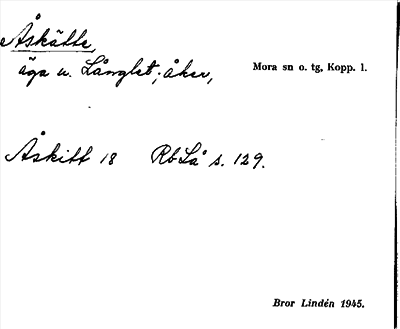 Åskätte,
äga u. Långlet; åker,
Mora sn o. tg, Kopp. l.
Åskitt 18 RbLå s. 129.
Bror Lindén 1945.